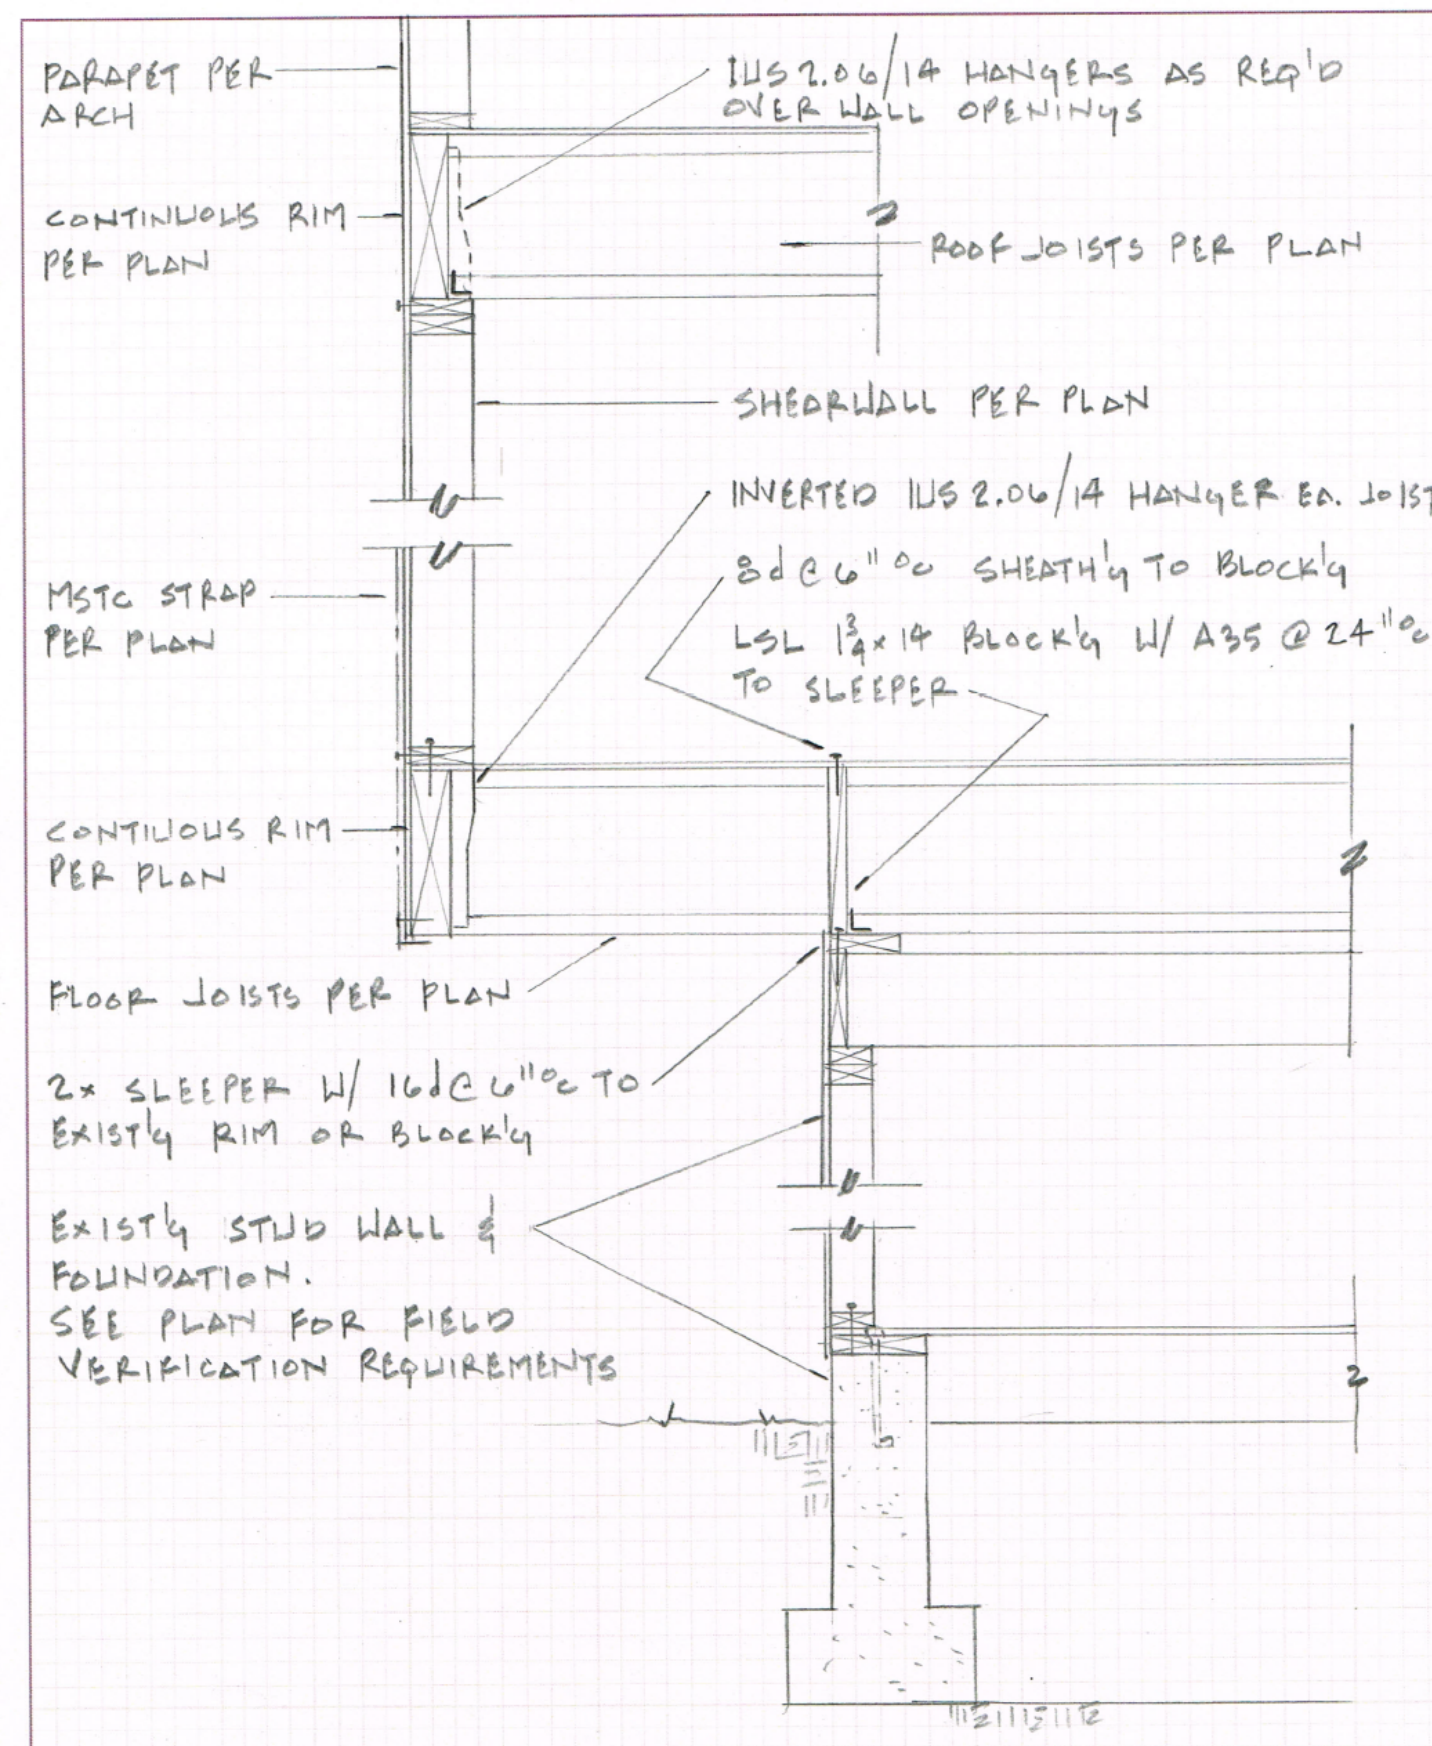 PARAPET PER
ARCH
IUS 2.06/14 HANGERS AS REQ'D
OVER WALL OPENINGS
CONTINUOUS RIM
PER PLAN
ROOF JOISTS PER PLAN
SHEARWALL PER PLAN
INVERTED IUS 2.06/14 HANGER EA. JOIST
8d @ 6" oc SHEATH'G TO BLOCK'G
MSTC STRAP
PER PLAN
LSL 1 3/4 x 14 BLOCK'G W/ A35 @ 24" oc
TO SLEEPER
CONTIUOUS RIM
PER PLAN
FLOOR JOISTS PER PLAN
2x SLEEPER W/ 16d @ 6" oc TO
EXIST'G RIM OR BLOCK'G
EXIST'G STUD WALL &
FOUNDATION.
SEE PLAN FOR FIELD
VERIFICATION REQUIREMENTS